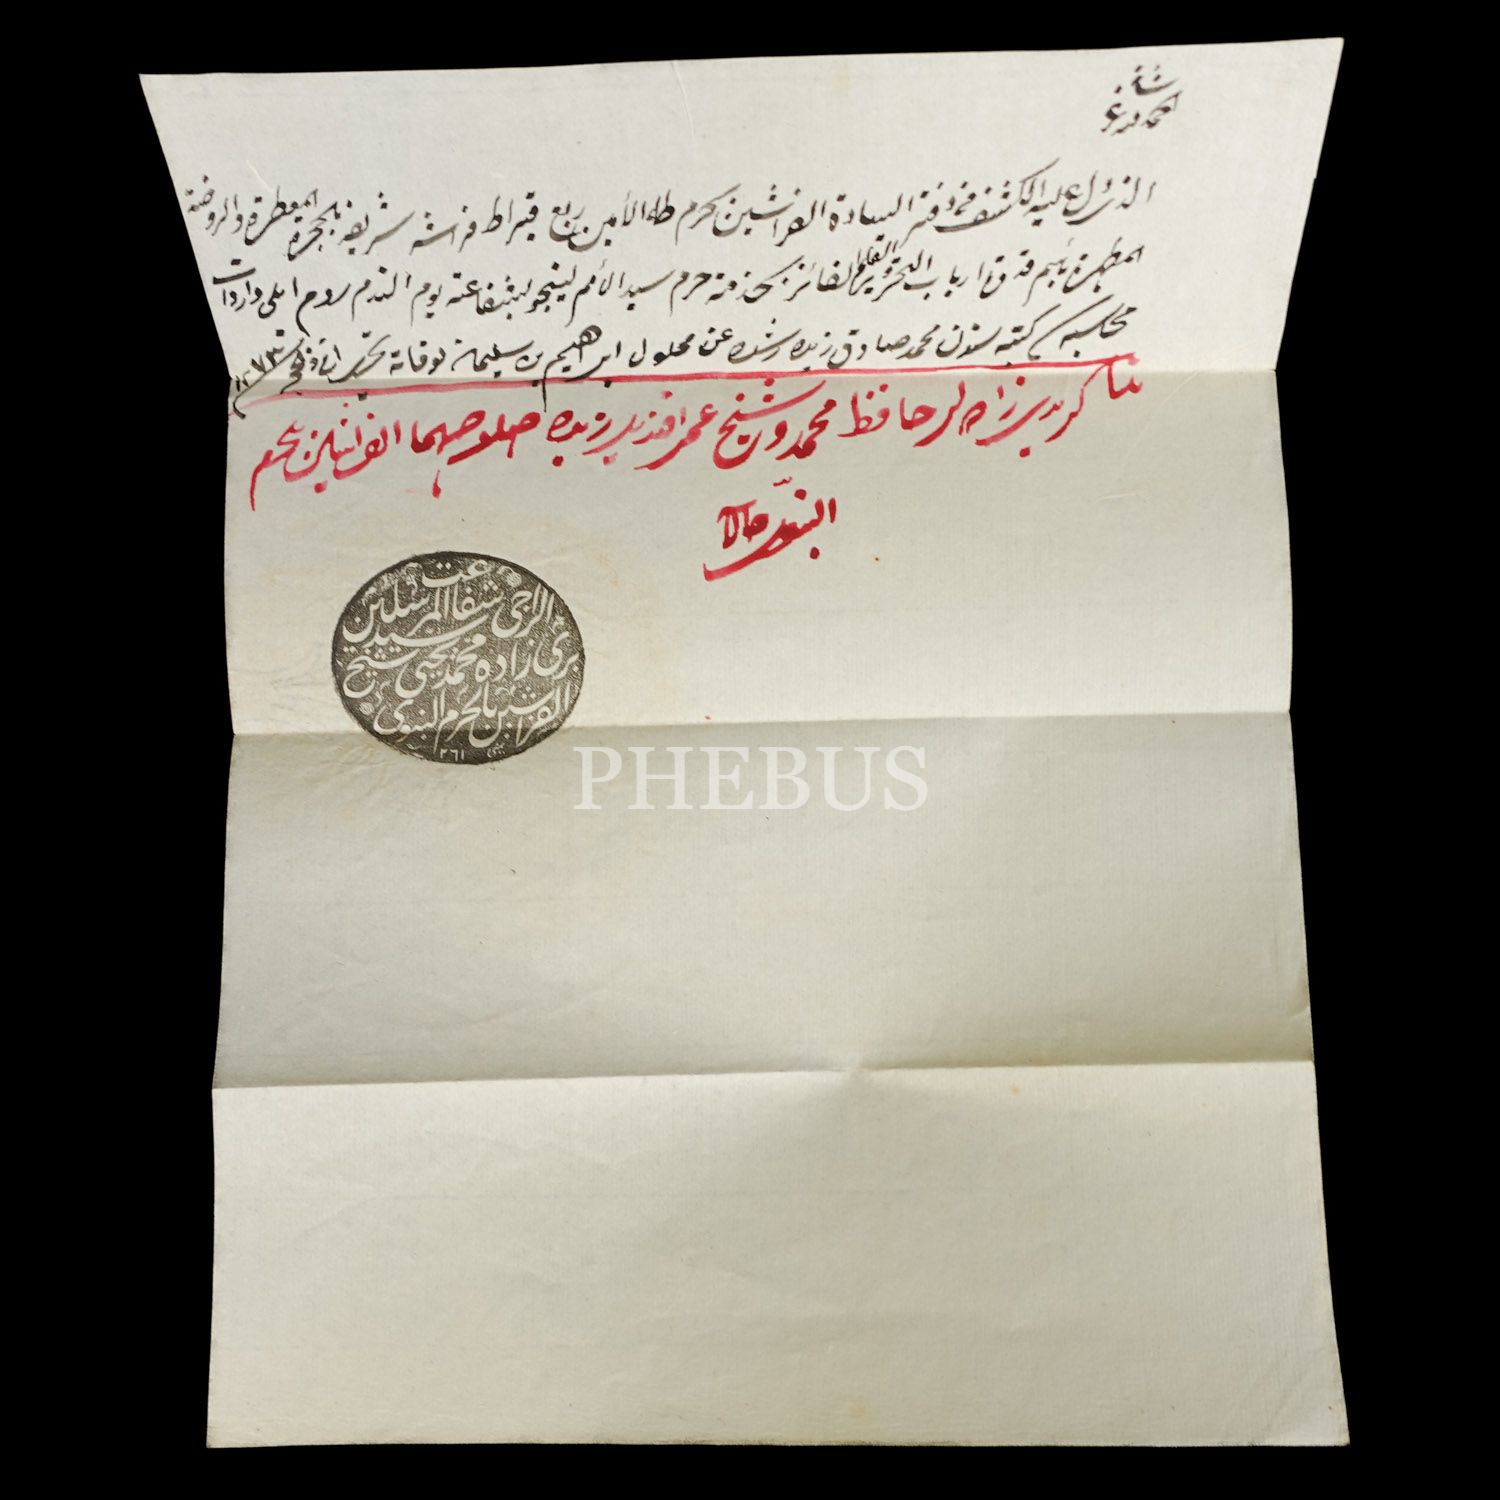 الذى دل عليه الكشف من دفتر السادة الفراشين بحرم طه الأمين ربع قيراط فراشة شريفة بالحجرة المعطرة والروضة
المطهرة بأسم قدوة ارباب التحرير والقلم الفائز بخدمة حرم سيد الأمم لينجو بشفاعته يوم الندم روم ايلى واردات
محاسبه كتبه سندن محمد صادق زيده رشده عن محلول ابراهيم بن سليمان لوفاته تحريرا فى ١٢٧٣
حافظ محمد وشيخ عمر افندى زيده الفراشين بحرم
النبوى حالا
الراجى شفاعت
سيد المرسلين
برى زاده محمد يحيى شيخ
الفراشين بالحرم النبوى
٢٦١
PHEBUS